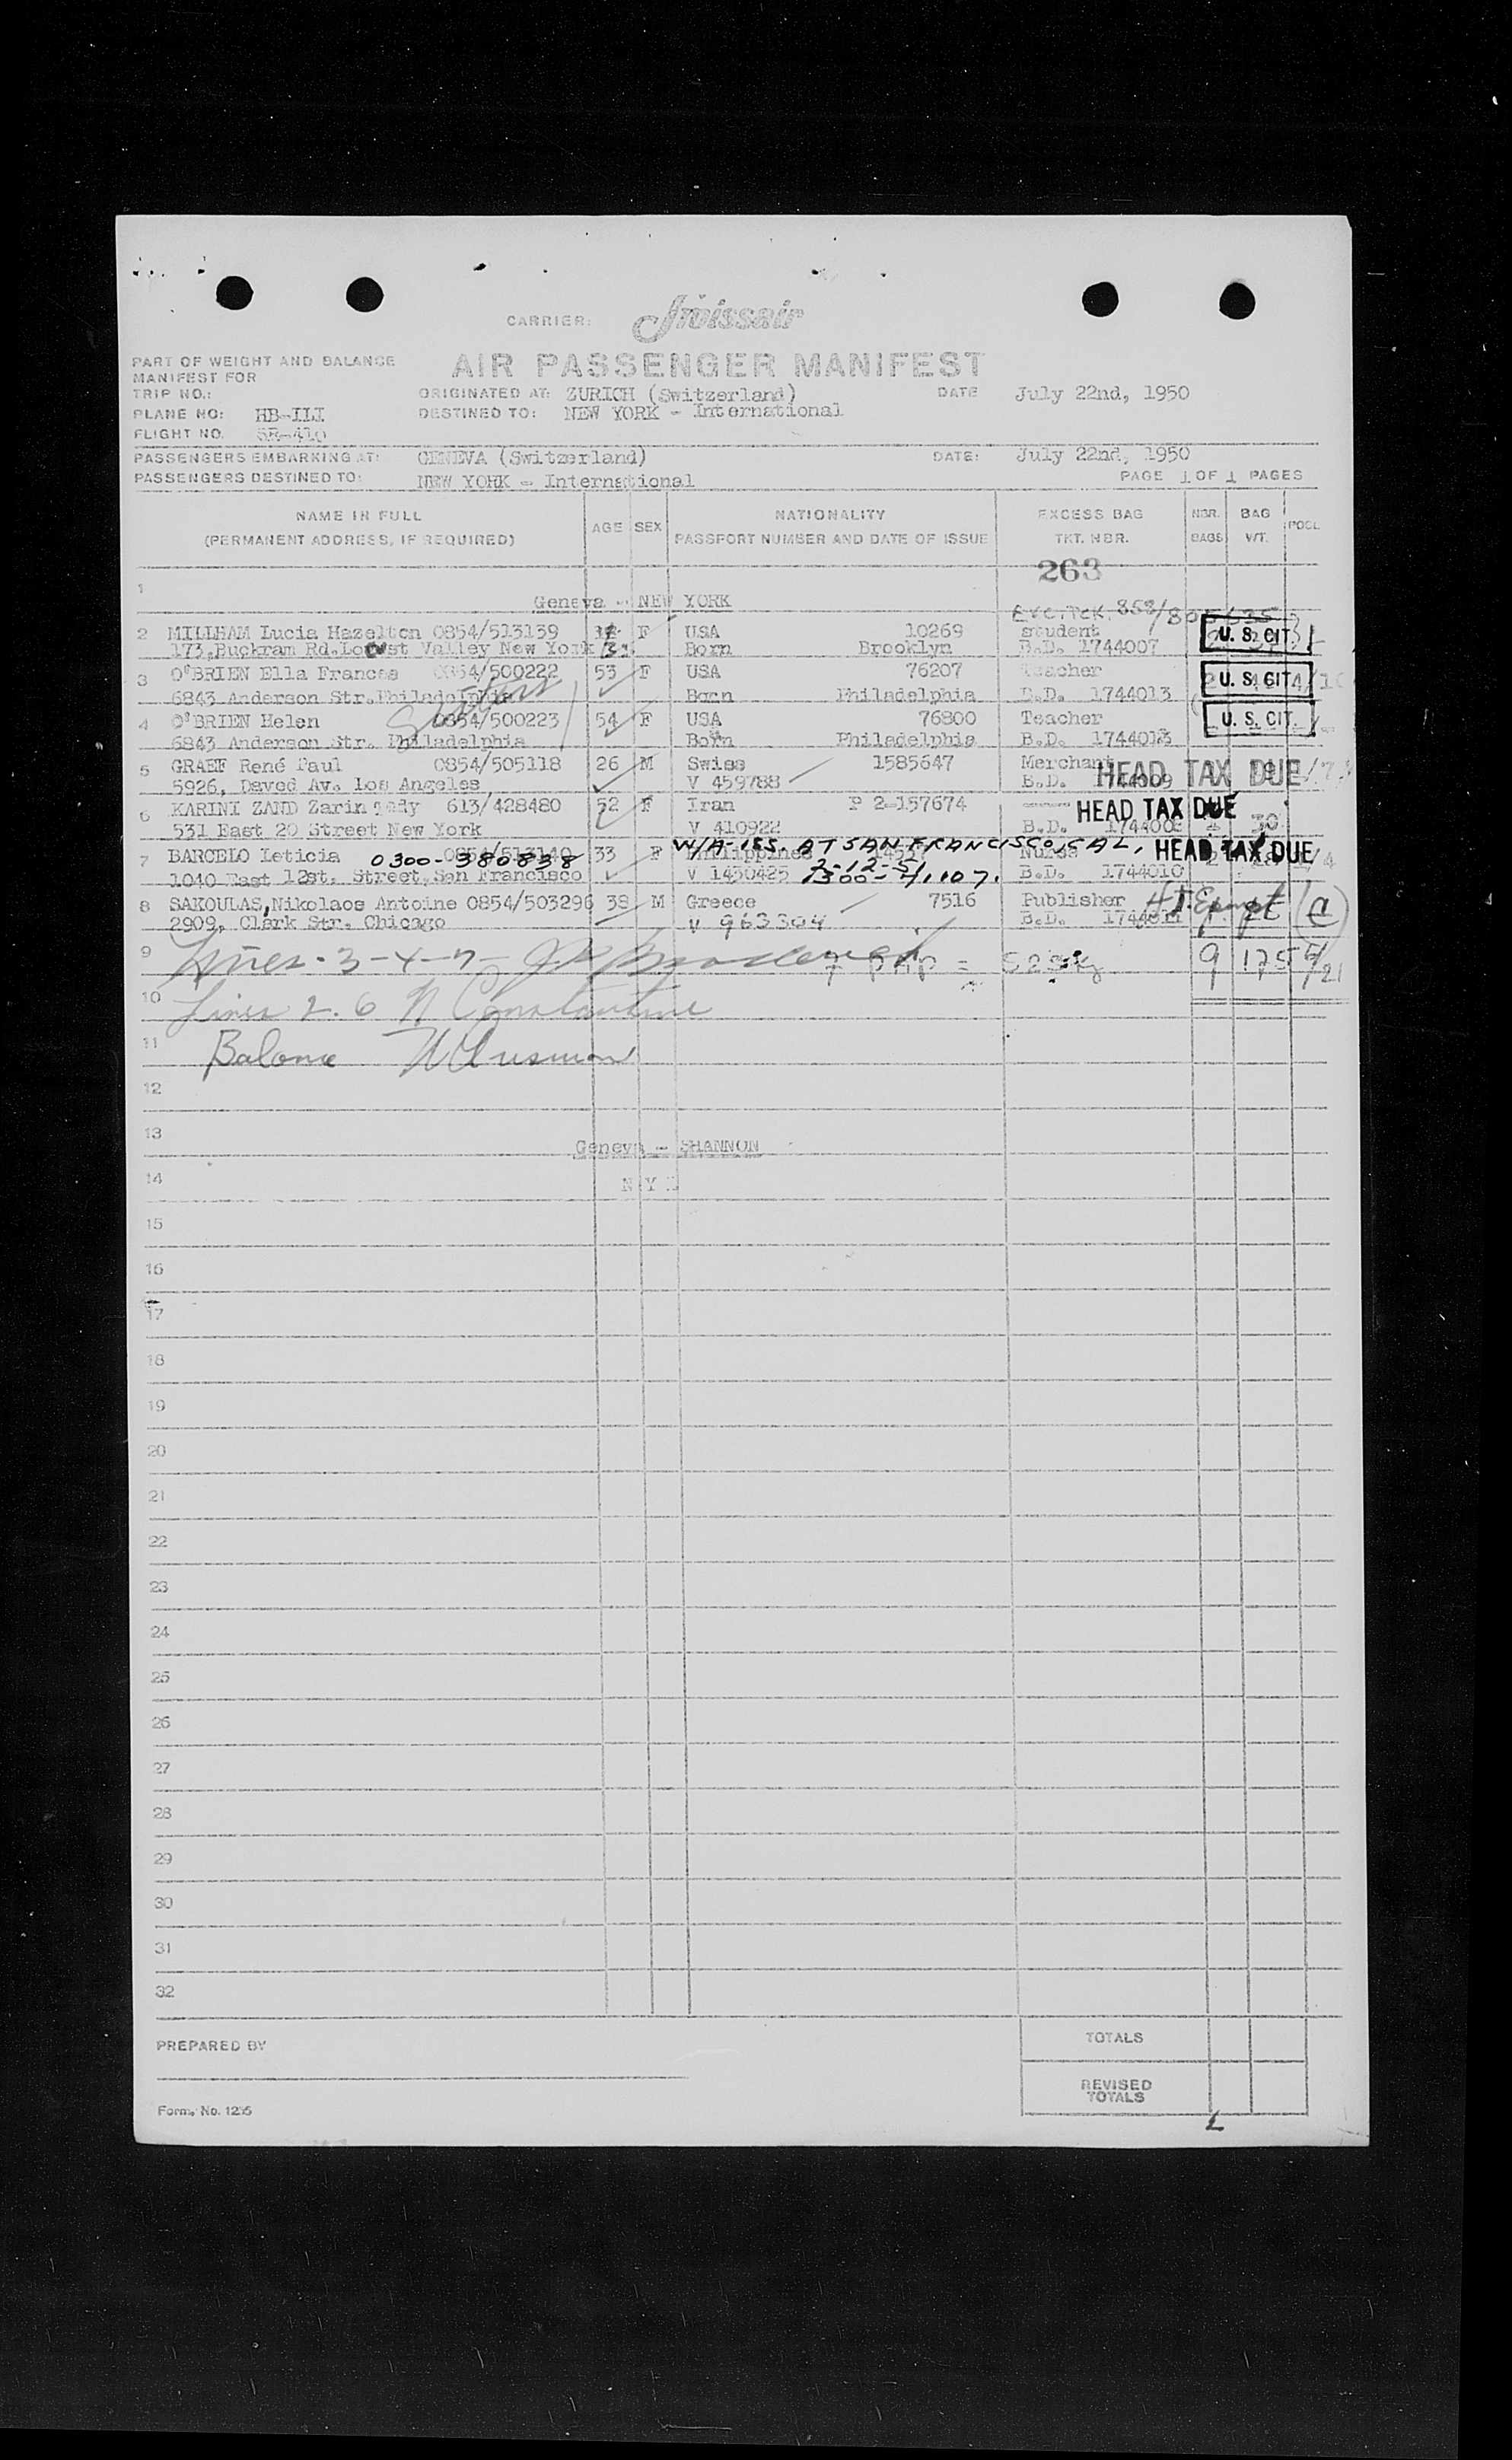 CARRIER: Swissair
PART OF WEIGHT AND BALANCE
MANIFEST FOR
AIR PASSENGER MANIFEST
TRIP NO.:
ORIGINATED AT: ZURICH (Switzerland) DATE July 22nd, 1950
PLANE NO: HB-ILI DESTINED TO: NEW YORK - International
FLIGHT NO. SR-410
PASSENGERS EMBARKING AT: GENEVA (Switzerland) DATE: July 22nd, 1950
PASSENGERS DESTINED TO: NEW YORK - International PAGE 1 OF 1 PAGES
NAME IN FULL
(PERMANENT ADDRESS, IF REQUIRED)
AGE SEX
NATIONALITY
PASSPORT NUMBER AND DATE OF ISSUE
EXCESS BAG
TKT. NBR.
NBR.
BAGS
BAG
WT.
POOL
263
1
Geneva - NEW YORK
2 MILLHAM Lucia Hazelton 0854/513139 F USA 10269 student U. S. CIT.
173,Buckram Rd.Locust Valley New York Born Brooklyn B.D. 1744007
3 O'BRIEN Ella Frances 0854/500222 53 F USA 76207 Teacher U. S. CIT.
6843 Anderson Str.Philadelphia Born Philadelphia B.D. 1744013
4 O'BRIEN Helen 0854/500223 54 F USA 76800 Teacher U. S. CIT.
6843 Anderson Str. Philadelphia Born Philadelphia B.D.
5 GRAEF René Paul 0854/505118 26 M Swiss 1585647 Merchant HEAD TAX DUE
5926, Daved Av. Los Angeles V 459788 B.D. 1744009
6 KARINI ZAND Zarin 613/428480 52 F Iran P 2-157674 HEAD TAX DUE
531 East 20 Street New York V 410922 B.D. 30
W/A-ISS. AT SAN FRANCISCO, CAL.
7 BARCELO Leticia 0300-380838 0854/513140 33 F Philippines Nurse HEAD TAX DUE
1040 East 12st. Street,San Francisco V 1430425 2-12-51 1300-41107. B.D. 1744010
8 SAKOULAS,Nikolaos Antoine 0854/503296 38 M Greece 7516 Publisher H.T. Exempt (a)
2909, Clark Str. Chicago V 963304 B.D.
9 Lines - 3-4-7- 9 175
10 Lines 2. 6 N Constantine
11 Balance
12
13
Geneva - SHANNON
14
N I L
15
16
17
18
19
20
21
22
23
24
25
26
27
28
29
30
31
32
PREPARED BY
TOTALS
REVISED
TOTALS
Form. No. 1255